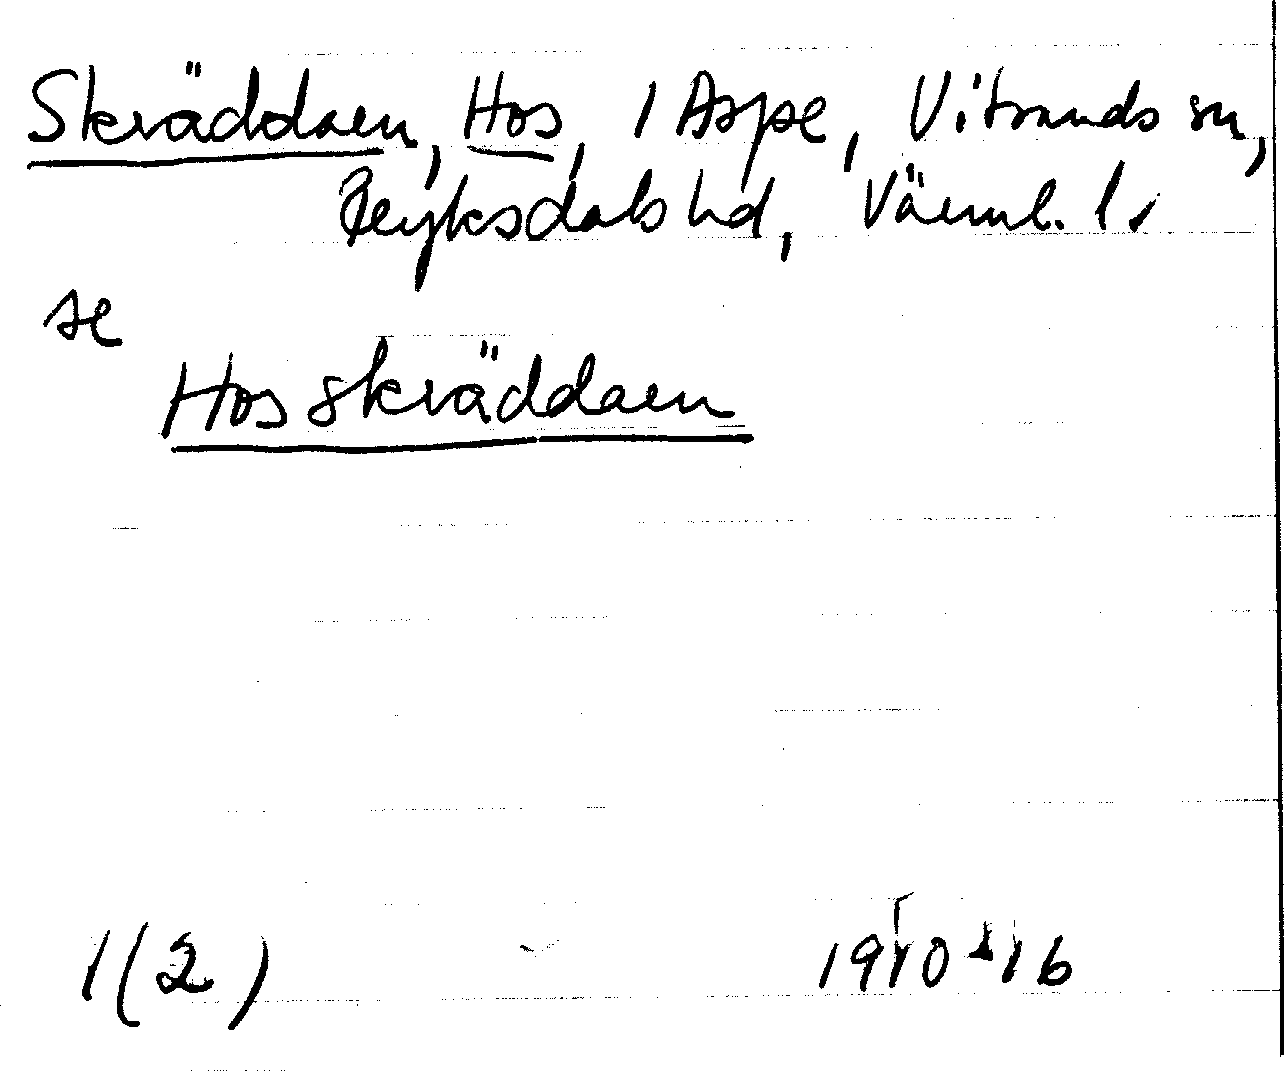 Skräddaren, Hos, 1 Aspe, Vitsands sn,
Fryksdals hd, Värml. l.
se
Hos skräddaren
1(2)